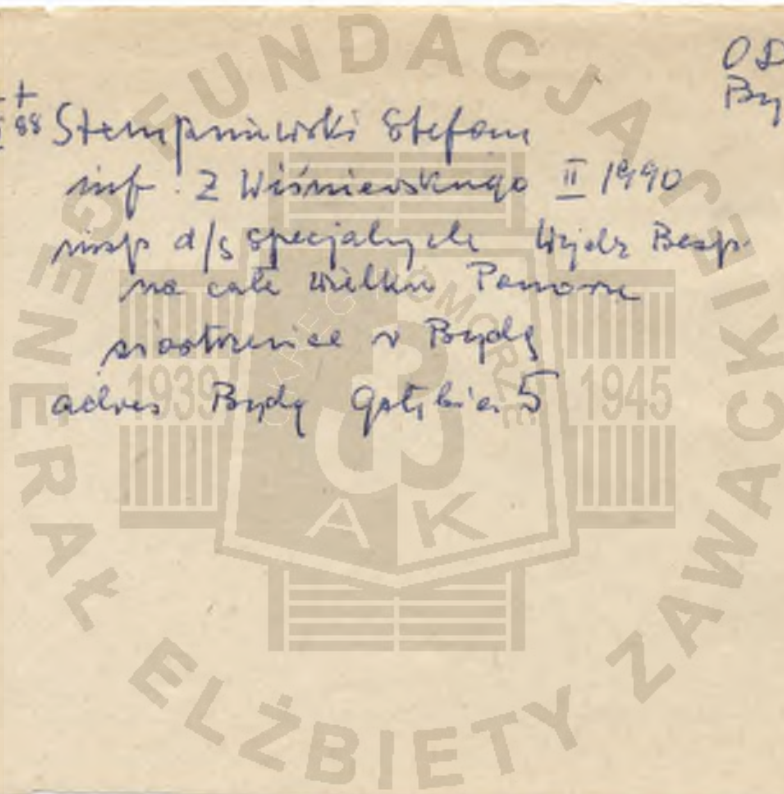 OD
By
+
88 Stempniewski Stefan
inf. Z Wiśniewskiego II 1990
insp d/s specjalnych Wydz Bezp.
na całe wielkie Pomorze
siostrzenice w Bydg
adres Bydg Gołębia 5
FUNDACJA GENERAŁ ELŻBIETY ZAWACKIEJ
OKRĘG POMORZE
1939 1945
AK